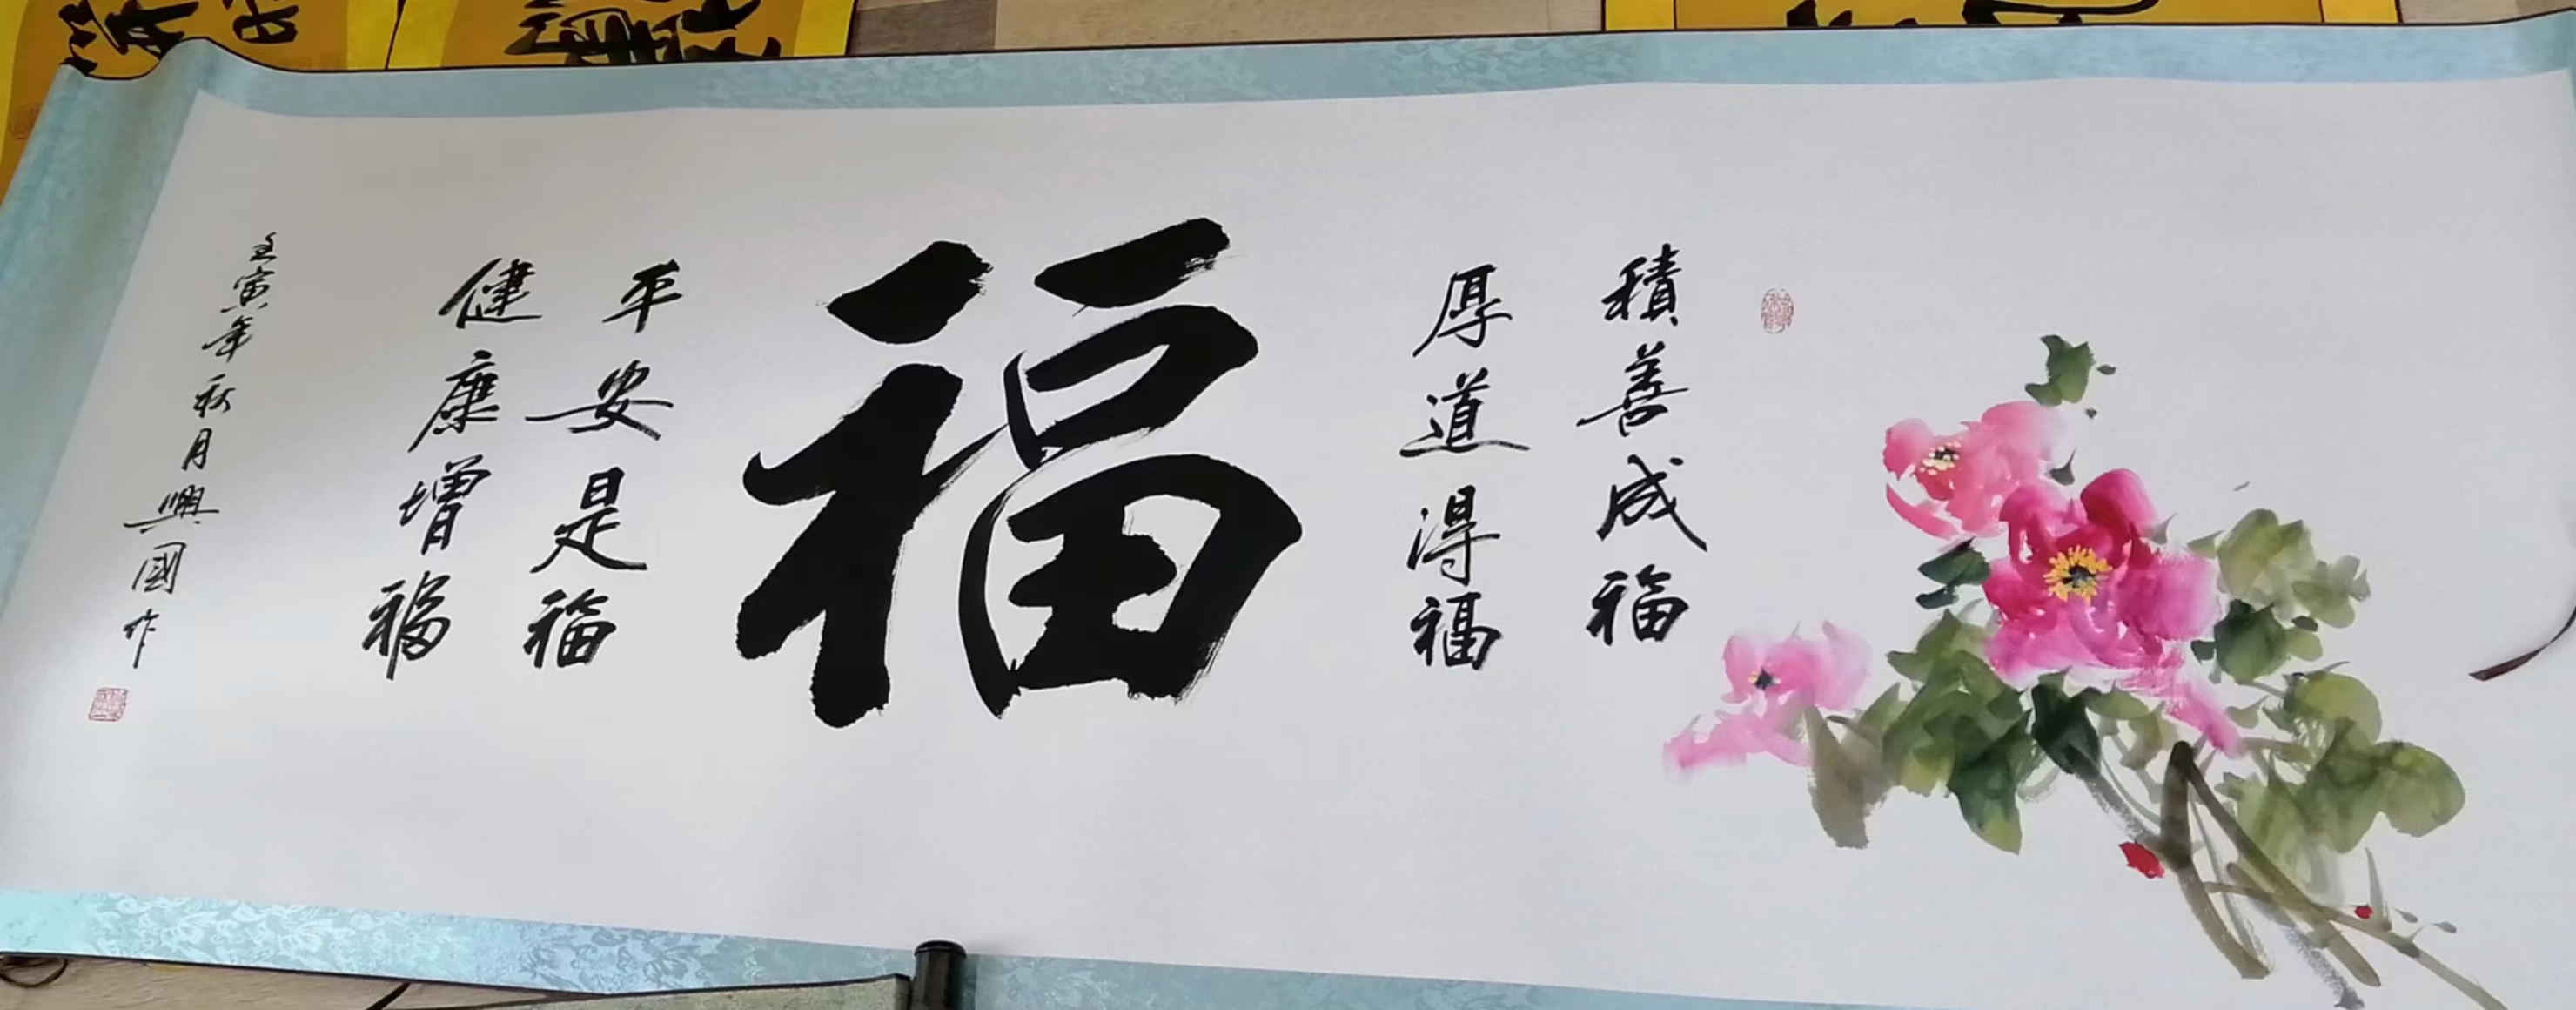 積善成福
厚道得福
福
平安是福
健康增福
壬寅年秋月興國作